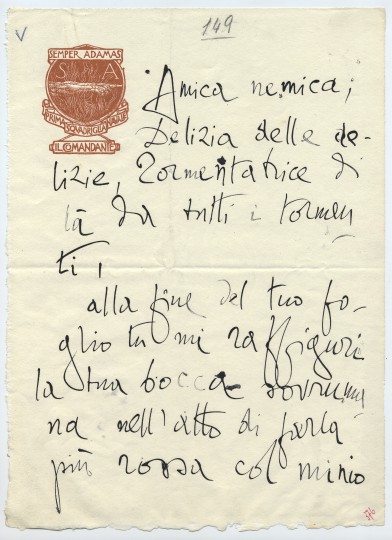 149
SEMPER ADAMAS
S A
PRIMA SQUADRIGLIA NAVALE
IL COMANDANTE
Amica nemica;
Delizia delle de-
lizie, Tormentatrice di
là da tutti i tormen
ti,
alla fine del tuo fo-
glio tu mi raffiguri
la tua bocca sovruma
na nell'atto di farla
più rossa col minio
376